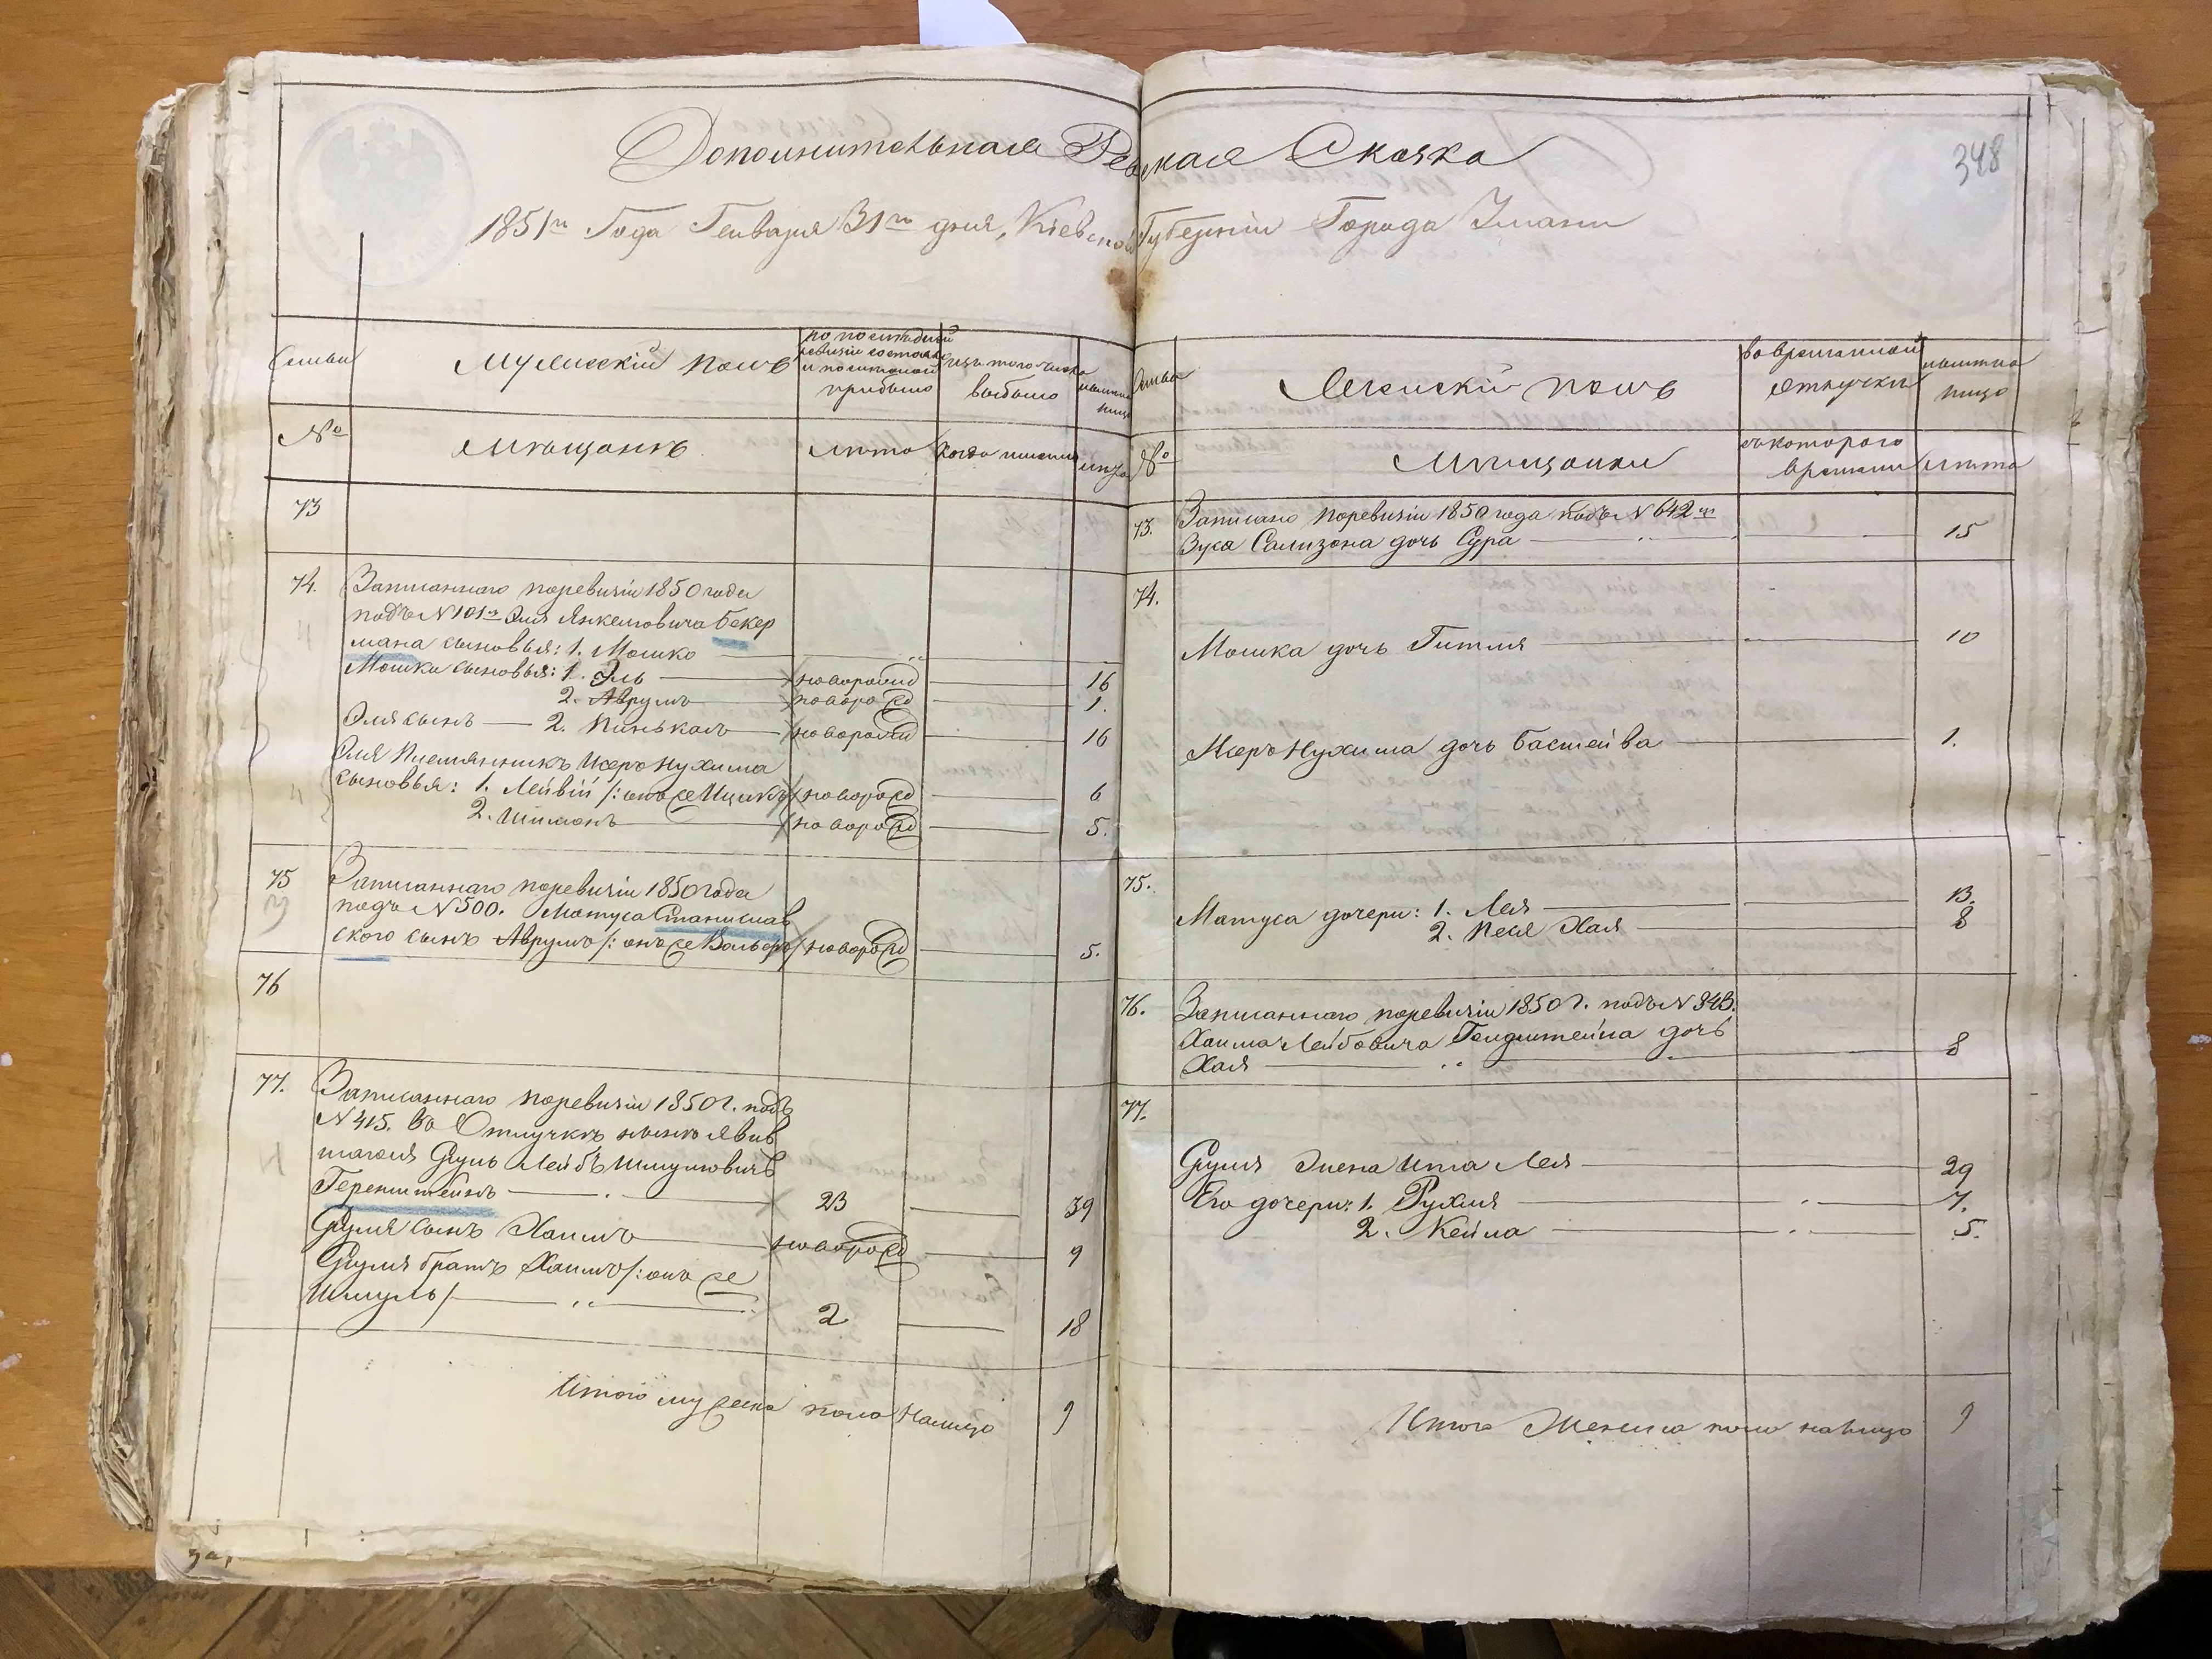 Дополнительная Ревизкая Сказка
348
1851го Года Генваря 31го дня, Киевской Губернiи Города Умани
Семьи
Мужескiй полъ
по последней
ревизiи состояло
и после оной
прибыло
изъ того числа
выбыло
ныне на
лицо
№
Мещанъ
Лета
Когда именно
лета
73
74. Записаннаго поревизiи 1850 года
подъ N 101мъ Эля Янкелювича Бекер
мана сыновья: 1. Мошко
Мошка сыновья: 1. Эль новорожд 16
2. Аврумъ новорожд 1.
Эля сынъ 2. Пинькасъ новорожд 16
Эля Племянникъ Меръ Нухима
сыновья: 1. Лейвiй /: онъ же Ицикъ/ новорожд 6
2. Шимонъ новорожд 5.
75 Записаннаго поревизiи 1850 года
подъ N 500. Матуса Станислав
ского сынъ Аврумъ /: онъ же Вольфъ/ новорожд 5.
76
77. Записаннаго поревизiи 1850 г. подъ
N 415. въ Отлучке ныне явив
шагося Сруль Лейбъ Шмулювичъ
Геренштейнъ 23 39
Сруля сынъ Хаимъ новорожд 9
Сруля братъ Хаимъ /: онъ же
Шмуль/ 2 18
Итого мужеска пола Налицо 9
Семьи
Женскiй полъ
во временной
отлучки
ныне на
лицо
№
Мещанки
съ которого
времени
лета
73. Записано поревизiи 1850 года подъ N 642мъ
Зуся Сализона дочь Сура 15
74.
Мошка дочь Гитля 10
Меръ Нухима дочь Басшейва 1.
75.
Матуса дочери: 1. Лея 13.
2. Песя Хая 8
76. Записаннаго поревизiи 1850 г. подъ N 343.
Хаима Лейбовича Гендштейна дочь
Хая 8
77.
Сруля Жена Ита Лея 29
Его дочери: 1. Рухля 7.
2. Кейла 5.
Итого Женска пола налицо 9